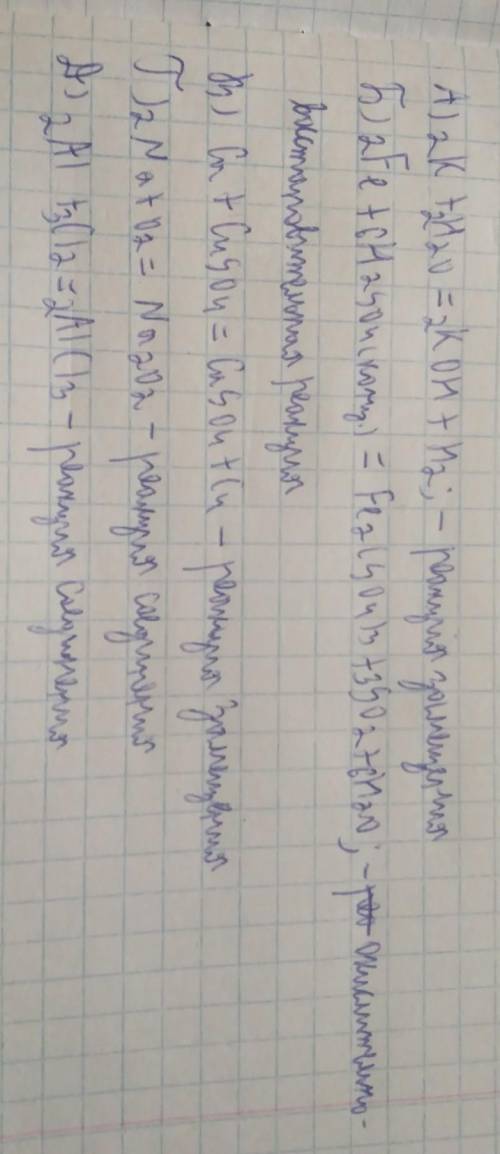 А) 2K + 2H2O = 2KOH + H2; - реакция замещения
Б) 2Fe + 6H2SO4 (конц.) = Fe2(SO4)3 + 3SO2 + 6H2O; - окислительно-
восстановительная реакция
В) Cu + CuSO4 = CuSO4 + Cu - реакция замещения
Г) 2Na + O2 = Na2O2 - реакция соединения
Д) 2Al + 3Cl2 = 2AlCl3 - реакция соединения